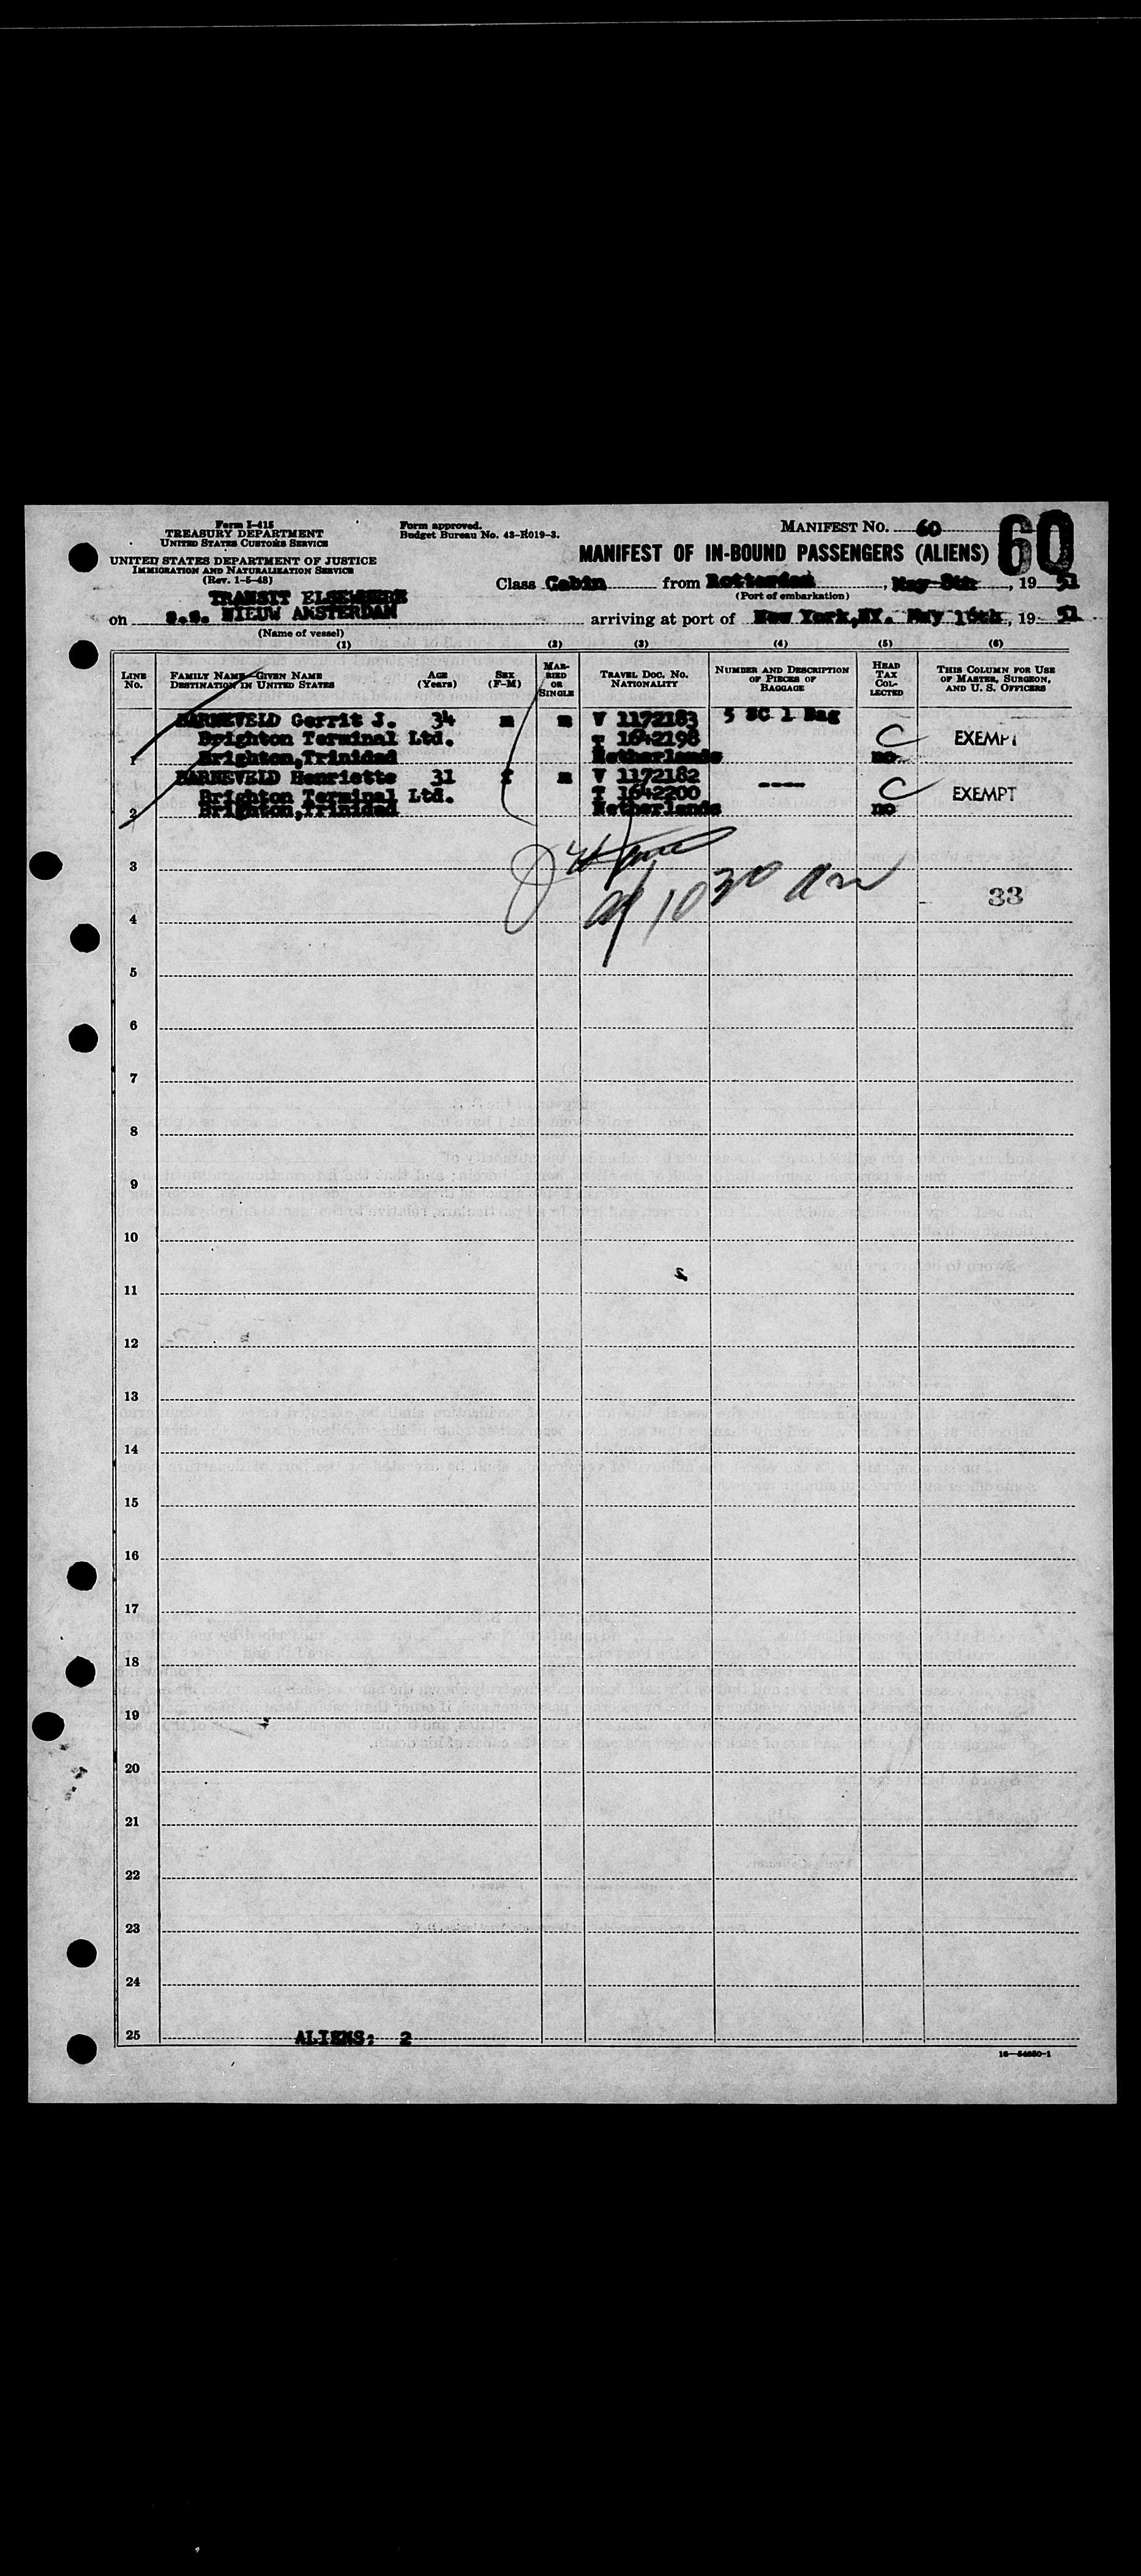 Form I-415
TREASURY DEPARTMENT
UNITED STATES CUSTOMS SERVICE
UNITED STATES DEPARTMENT OF JUSTICE
IMMIGRATION AND NATURALIZATION SERVICE
(Rev. 1-5-48)
Form approved.
Budget Bureau No. 43-R019-3.
MANIFEST NO. 60
60
MANIFEST OF IN-BOUND PASSENGERS (ALIENS)
Class Cabin from Rotterdam, May 8th, 1951
(Port of embarkation)
TRANSIT ELSEWHERE
on S.S. NIEUW AMSTERDAM arriving at port of New York,NY. May 16th, 1951
(Name of vessel)
(1) (2) (3) (4) (5) (6)
LINE No. FAMILY NAME—GIVEN NAME DESTINATION IN UNITED STATES AGE (Years) SEX (F-M) MARRIED OR SINGLE TRAVEL DOC. NO. NATIONALITY NUMBER AND DESCRIPTION OF PIECES OF BAGGAGE HEAD TAX COLLECTED THIS COLUMN FOR USE OF MASTER, SURGEON, AND U. S. OFFICERS
BARNEVELD Gerrit J. 34 m m V 1172183 5 SC 1 Bag
Brighton Terminal Ltd. 1642198 C EXEMPT
1 Brighton,Trinidad Netherlands no
BARNEVELD Henriette 31 f m V 1172182 ----
Brighton Terminal Ltd. T 1642200 C EXEMPT
2 Brighton,Trinidad Netherlands no
3
10 30 am
33
4
5
6
7
8
9
10
11
12
13
14
15
16
17
18
19
20
21
22
23
24
25 ALIENS: 2
16—54650-1